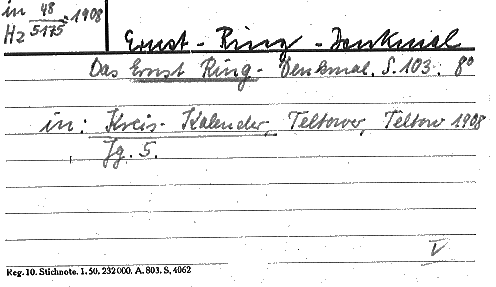 in 48/5175. 1908
Hz
Ernst-Ring-Denkmal
Das Ernst Ring-Denkmal. S. 103. 8°
in: Kreis-Kalender, Teltower, Teltow 1908
Jg. 5.
V
Reg. 10. Stichnote. 1. 50, 232000. A. 803. S, 4062